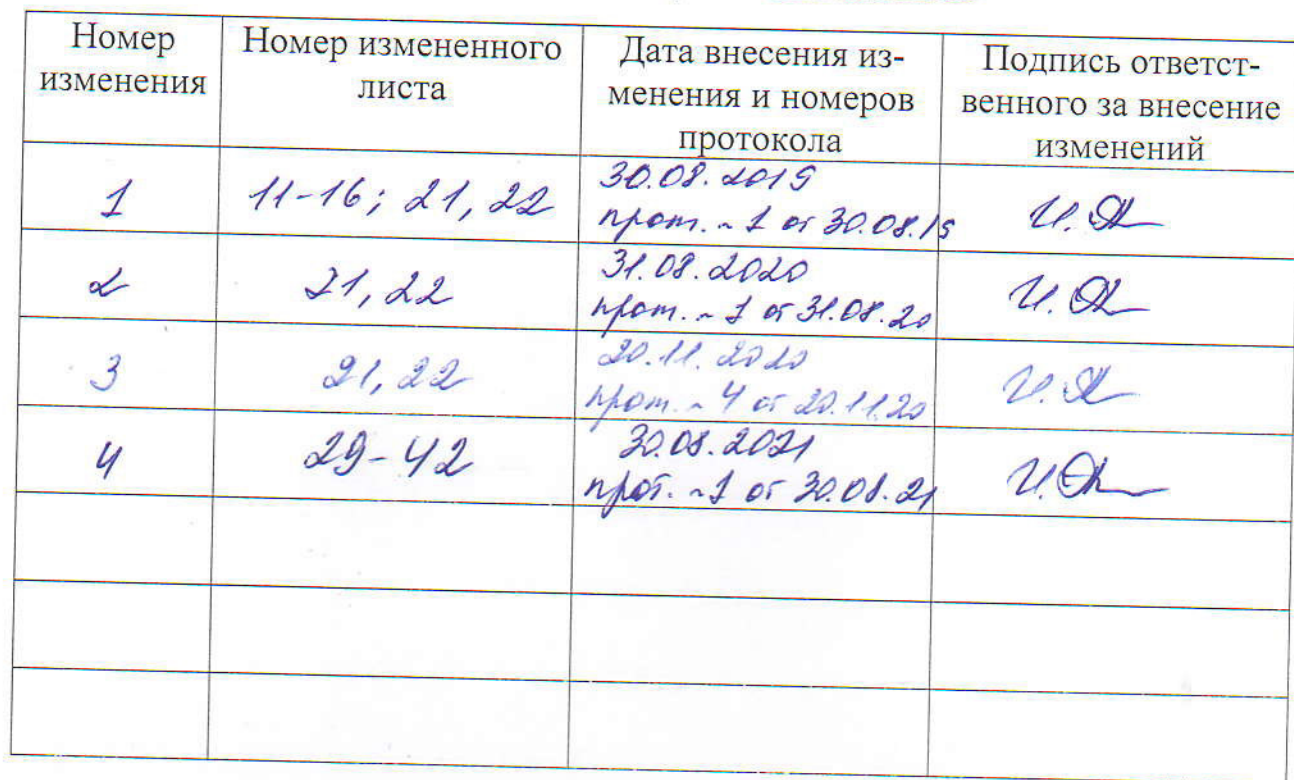 Номер
изменения
Номер измененного
листа
Дата внесения из-
менения и номеров
протокола
Подпись ответст-
венного за внесение
изменений
1
11-16; 21, 22
30.08.2019
прот. ~ 1 от 30.08.19
2
21, 22
31.08.2020
прот. ~ 1 от 31.08.20
3
21, 22
20.11.2020
прот. ~ 4 от 20.11.20
4
29-42
30.08.2021
прот. ~ 1 от 30.08.21